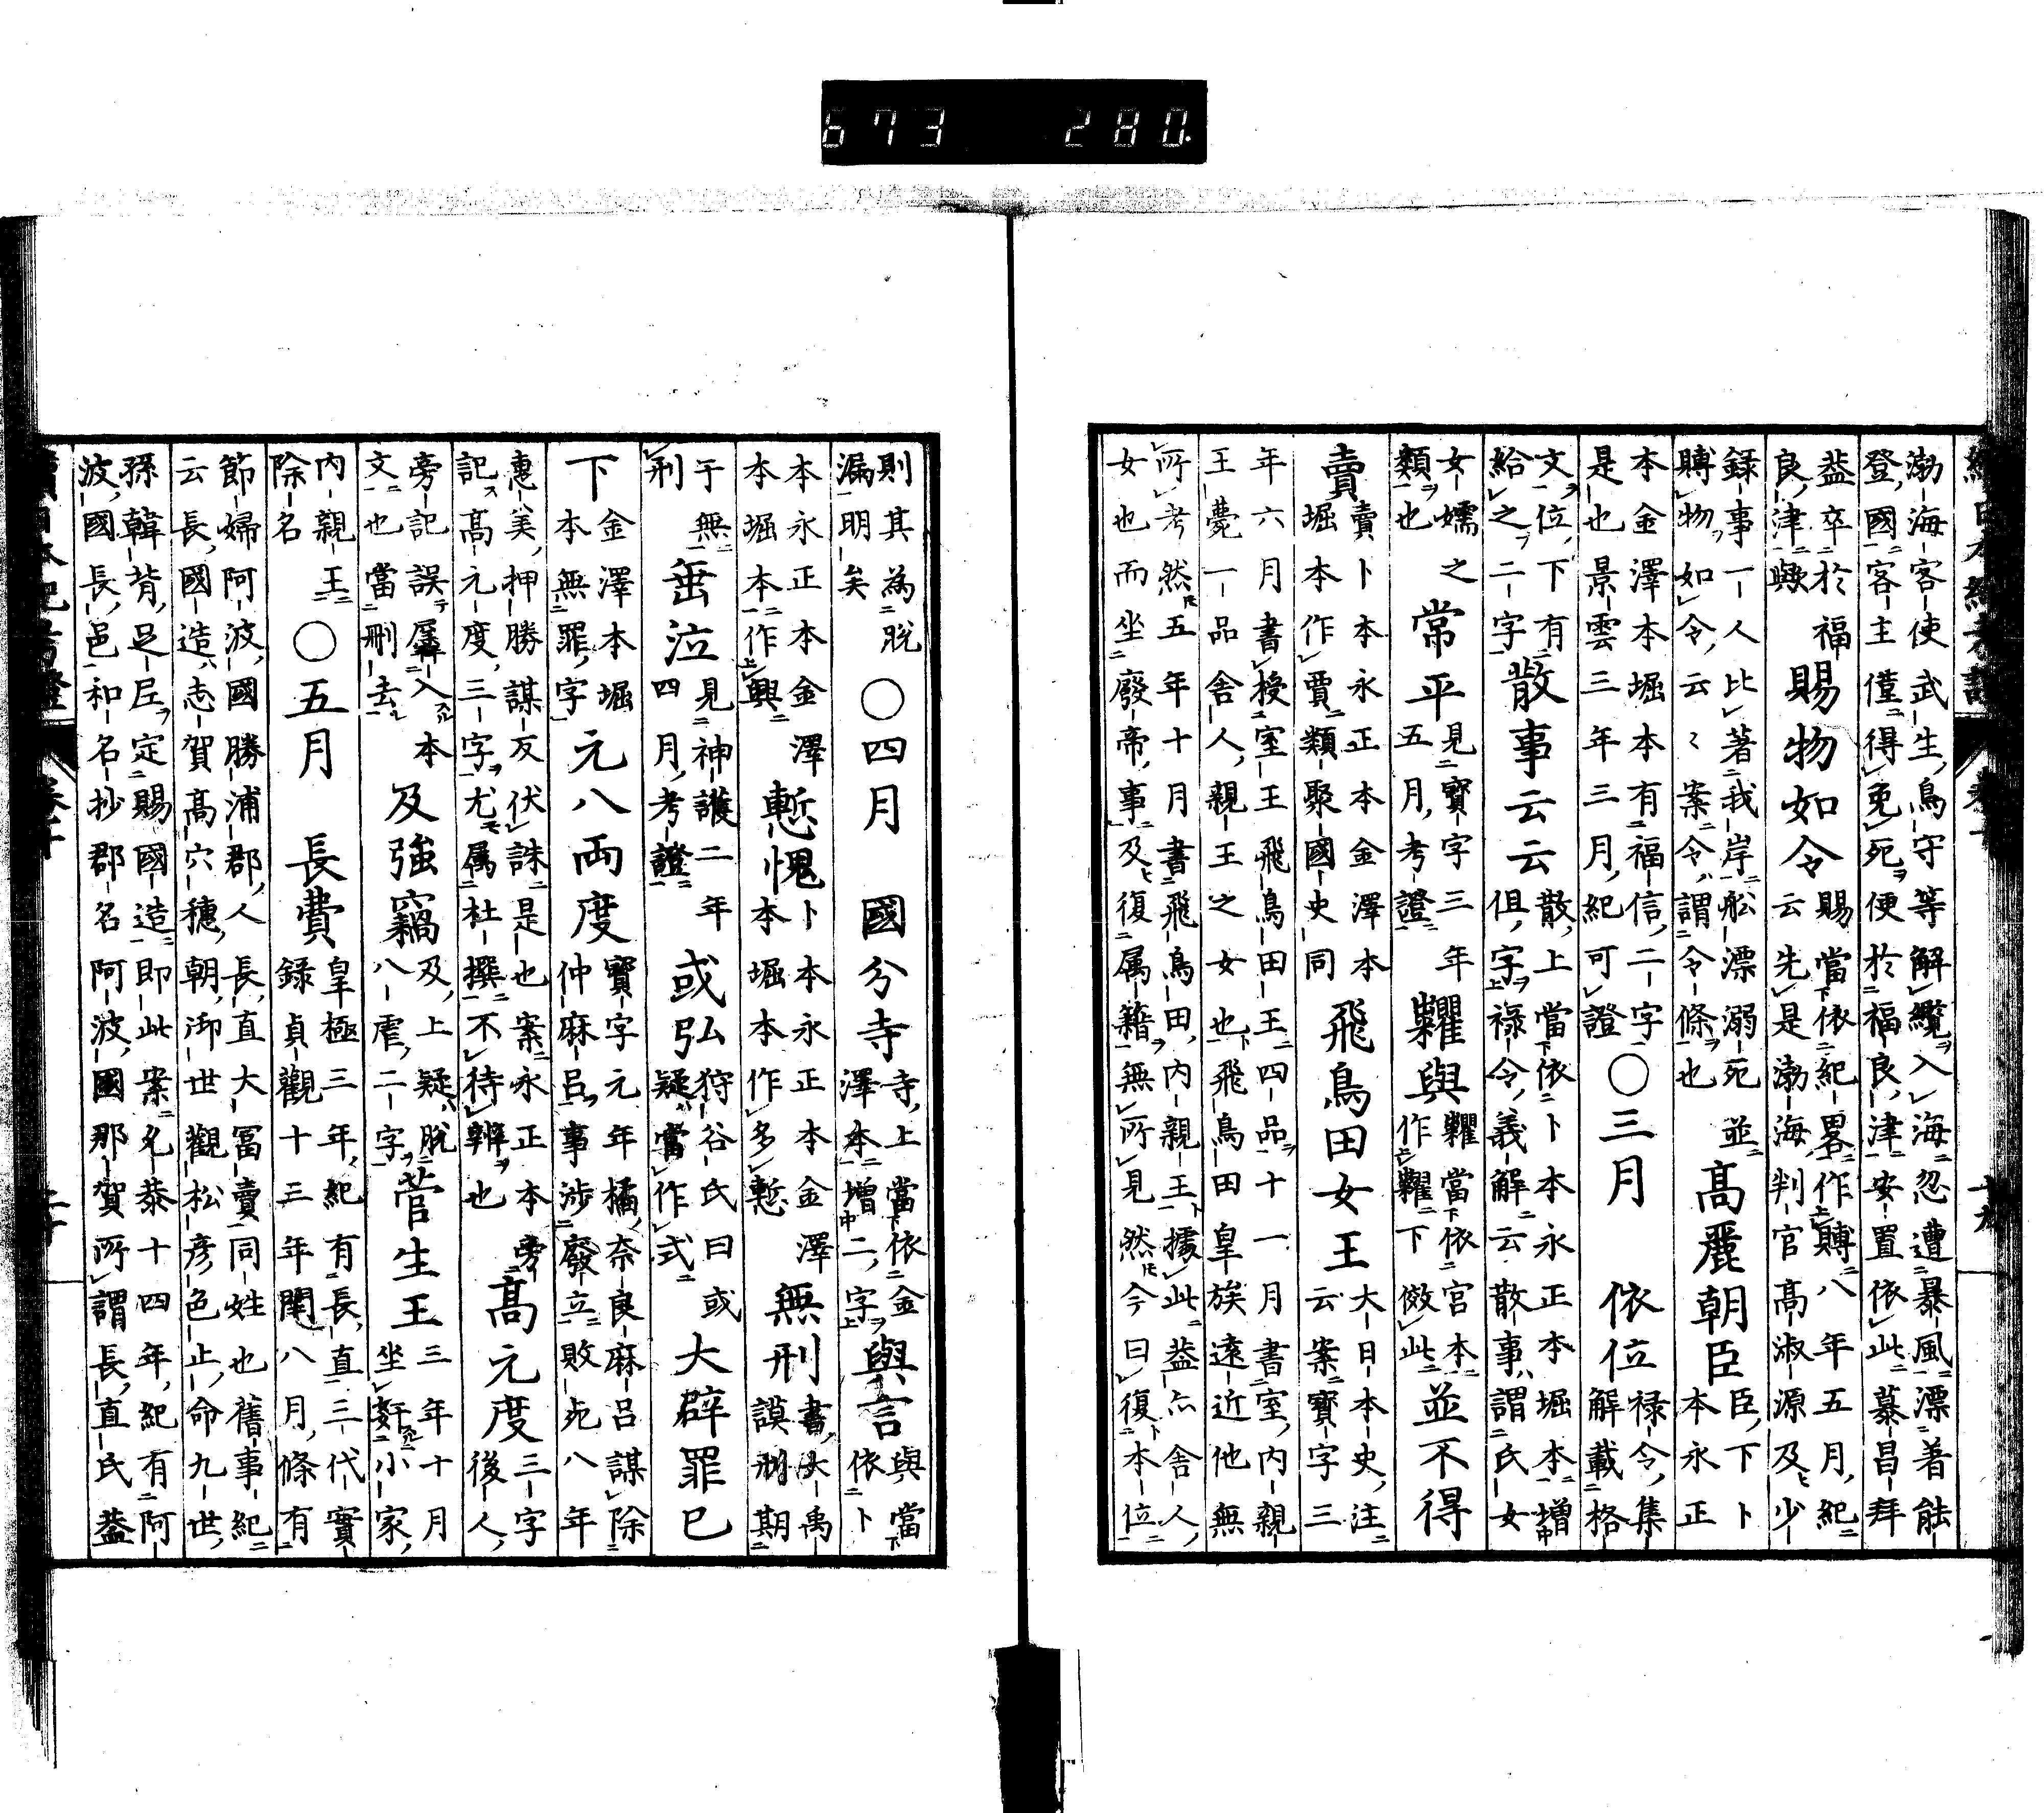 673 280
渤海客使武生鳥守等解纜入海忽遭暴風漂着能
登國客主僅得免死便於福良津安置依此慕昌拜
蓋卒於福
良津歟
賜物如令
賜當依紀畧作賻八年五月紀
云先是渤海判官高淑源及少
錄事一人比著我岸舩漂溺死
賻物如令云々案令謂令條也
並
高麗朝臣
臣下卜
本永正
本金澤本堀本有福信二字
是也景雲三年三月紀可證
○三月 依位
祿令集
解載格
文位下有
給之二字
散事云云
散上當依卜本永正本堀本增
但字祿令義解云散事謂氏女
女嬬之
類也
常平
見寶字三年
五月考證
糶與
糶當依宮本
作糴下倣此
並不得
賣
賣卜本永正本金澤本
堀本作賈類聚國史同
飛鳥田女王
大日本史注
云案寶字三
年六月書授室王飛鳥田王四品十一月書室内親
王薨一品舍人親王之女也飛鳥田皇族遠近他無
所考然五年十月書飛鳥田内親王據此蓋亦舍人
女也而坐廢帝事及復属籍無所見然今曰復本位
則其為脫
漏明矣
○四月 國分寺
寺上當依金
澤本增二字
與言
與當
依卜
本永正本金澤
本堀本作興
慙愧
卜本永正本金澤
本堀本作多慙
無刑
書大禹
謨刑期
于無
刑
垂泣
見神護二年
四月考證
或弘
狩谷氏曰或
疑當作式
大辟罪已
下
金澤本堀
本無罪字
元八両度
寶字元年橘奈良麻呂謀除
仲麻呂事涉廢立敗死八年
惠美押勝謀反伏誅是也案永正本旁
記高元度三字尤属杜撰不待辨也
高元度
三字
後人
旁記誤屬入本
文也當刪去
及強竊
及上疑脫
八虐二字
菅生王
三年十月
坐姧小家
内親王
除名
○五月 長費
皇極三年紀有長直三代實
錄貞觀十三年閏八月條有
節婦阿波國勝浦郡人長直大富賣同姓也舊事紀
云長國造志賀高穴穗朝御世觀松彥色止命九世
孫韓背足尼定賜國造即此案允恭十四年紀有阿
波國長邑和名抄郡名阿波國那賀所謂長直氏蓋